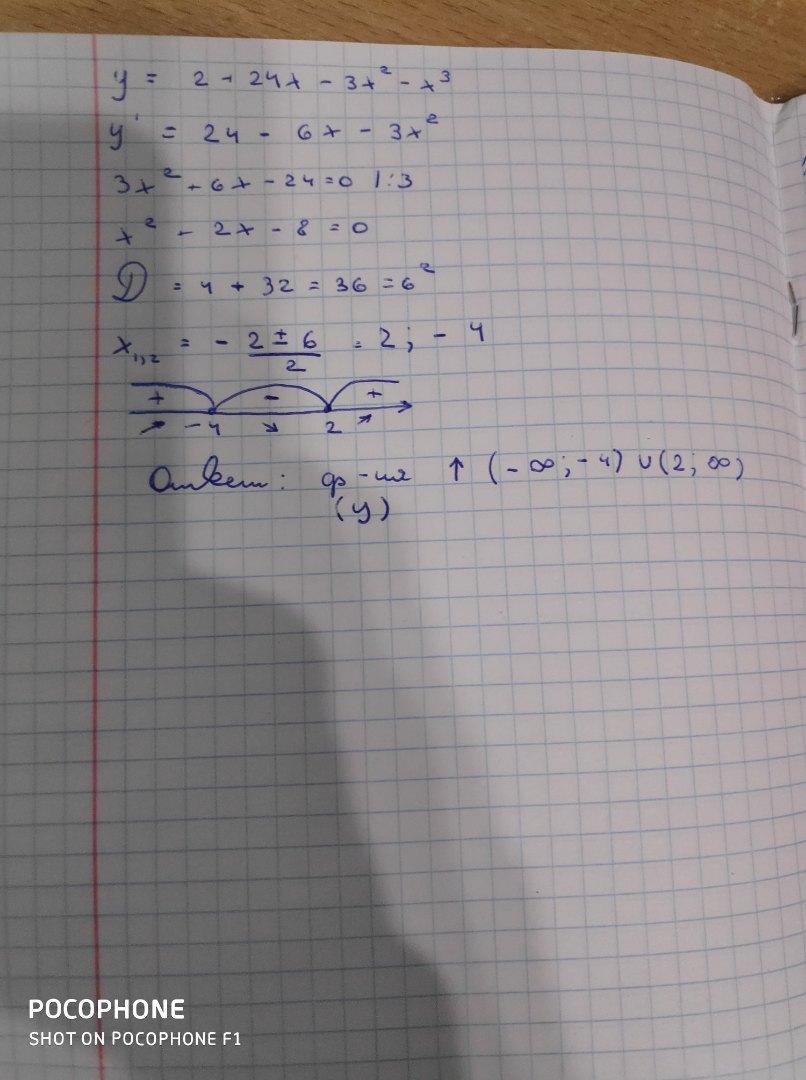 y = 2 + 24x - 3x² - x³
y' = 24 - 6x - 3x²
3x² + 6x - 24 = 0 | : 3
x² + 2x - 8 = 0
D = 4 + 32 = 36 = 6²
x₁,₂ = - 2 ± 6 / 2 = 2; - 4
+ - +
↗ -4 ↘ 2 ↗
Ответ: ф-ия ↑ (-∞; -4) ∪ (2; ∞)
(y)
POCOPHONE
SHOT ON POCOPHONE F1